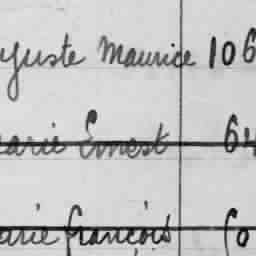 uguste Maurice 106
arie Ernest 64
arie françois 60